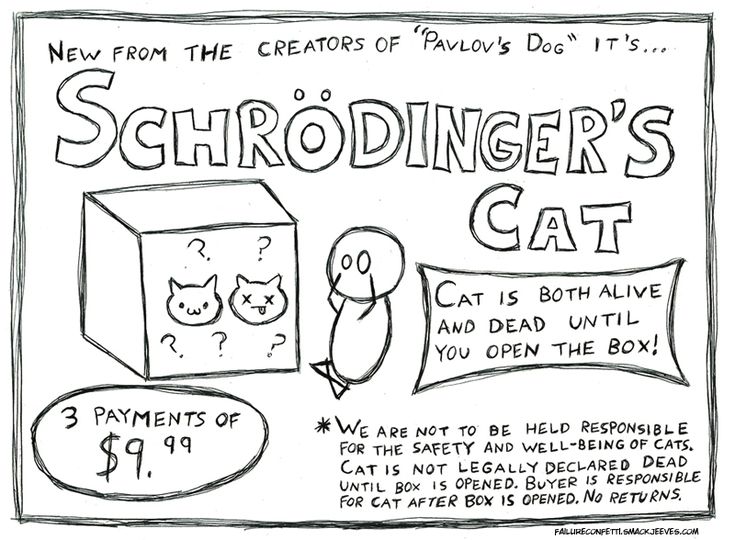 NEW FROM THE CREATORS OF "PAVLOV'S DOG" IT'S...
SCHRÖDINGER'S
CAT
? ?
? ? ?
CAT IS BOTH ALIVE
AND DEAD UNTIL
YOU OPEN THE BOX!
3 PAYMENTS OF
$9.99
*WE ARE NOT TO BE HELD RESPONSIBLE
FOR THE SAFETY AND WELL-BEING OF CATS.
CAT IS NOT LEGALLY DECLARED DEAD
UNTIL BOX IS OPENED. BUYER IS RESPONSIBLE
FOR CAT AFTER BOX IS OPENED. NO RETURNS.
FAILURECONFETTI.SMACKJEEVES.COM